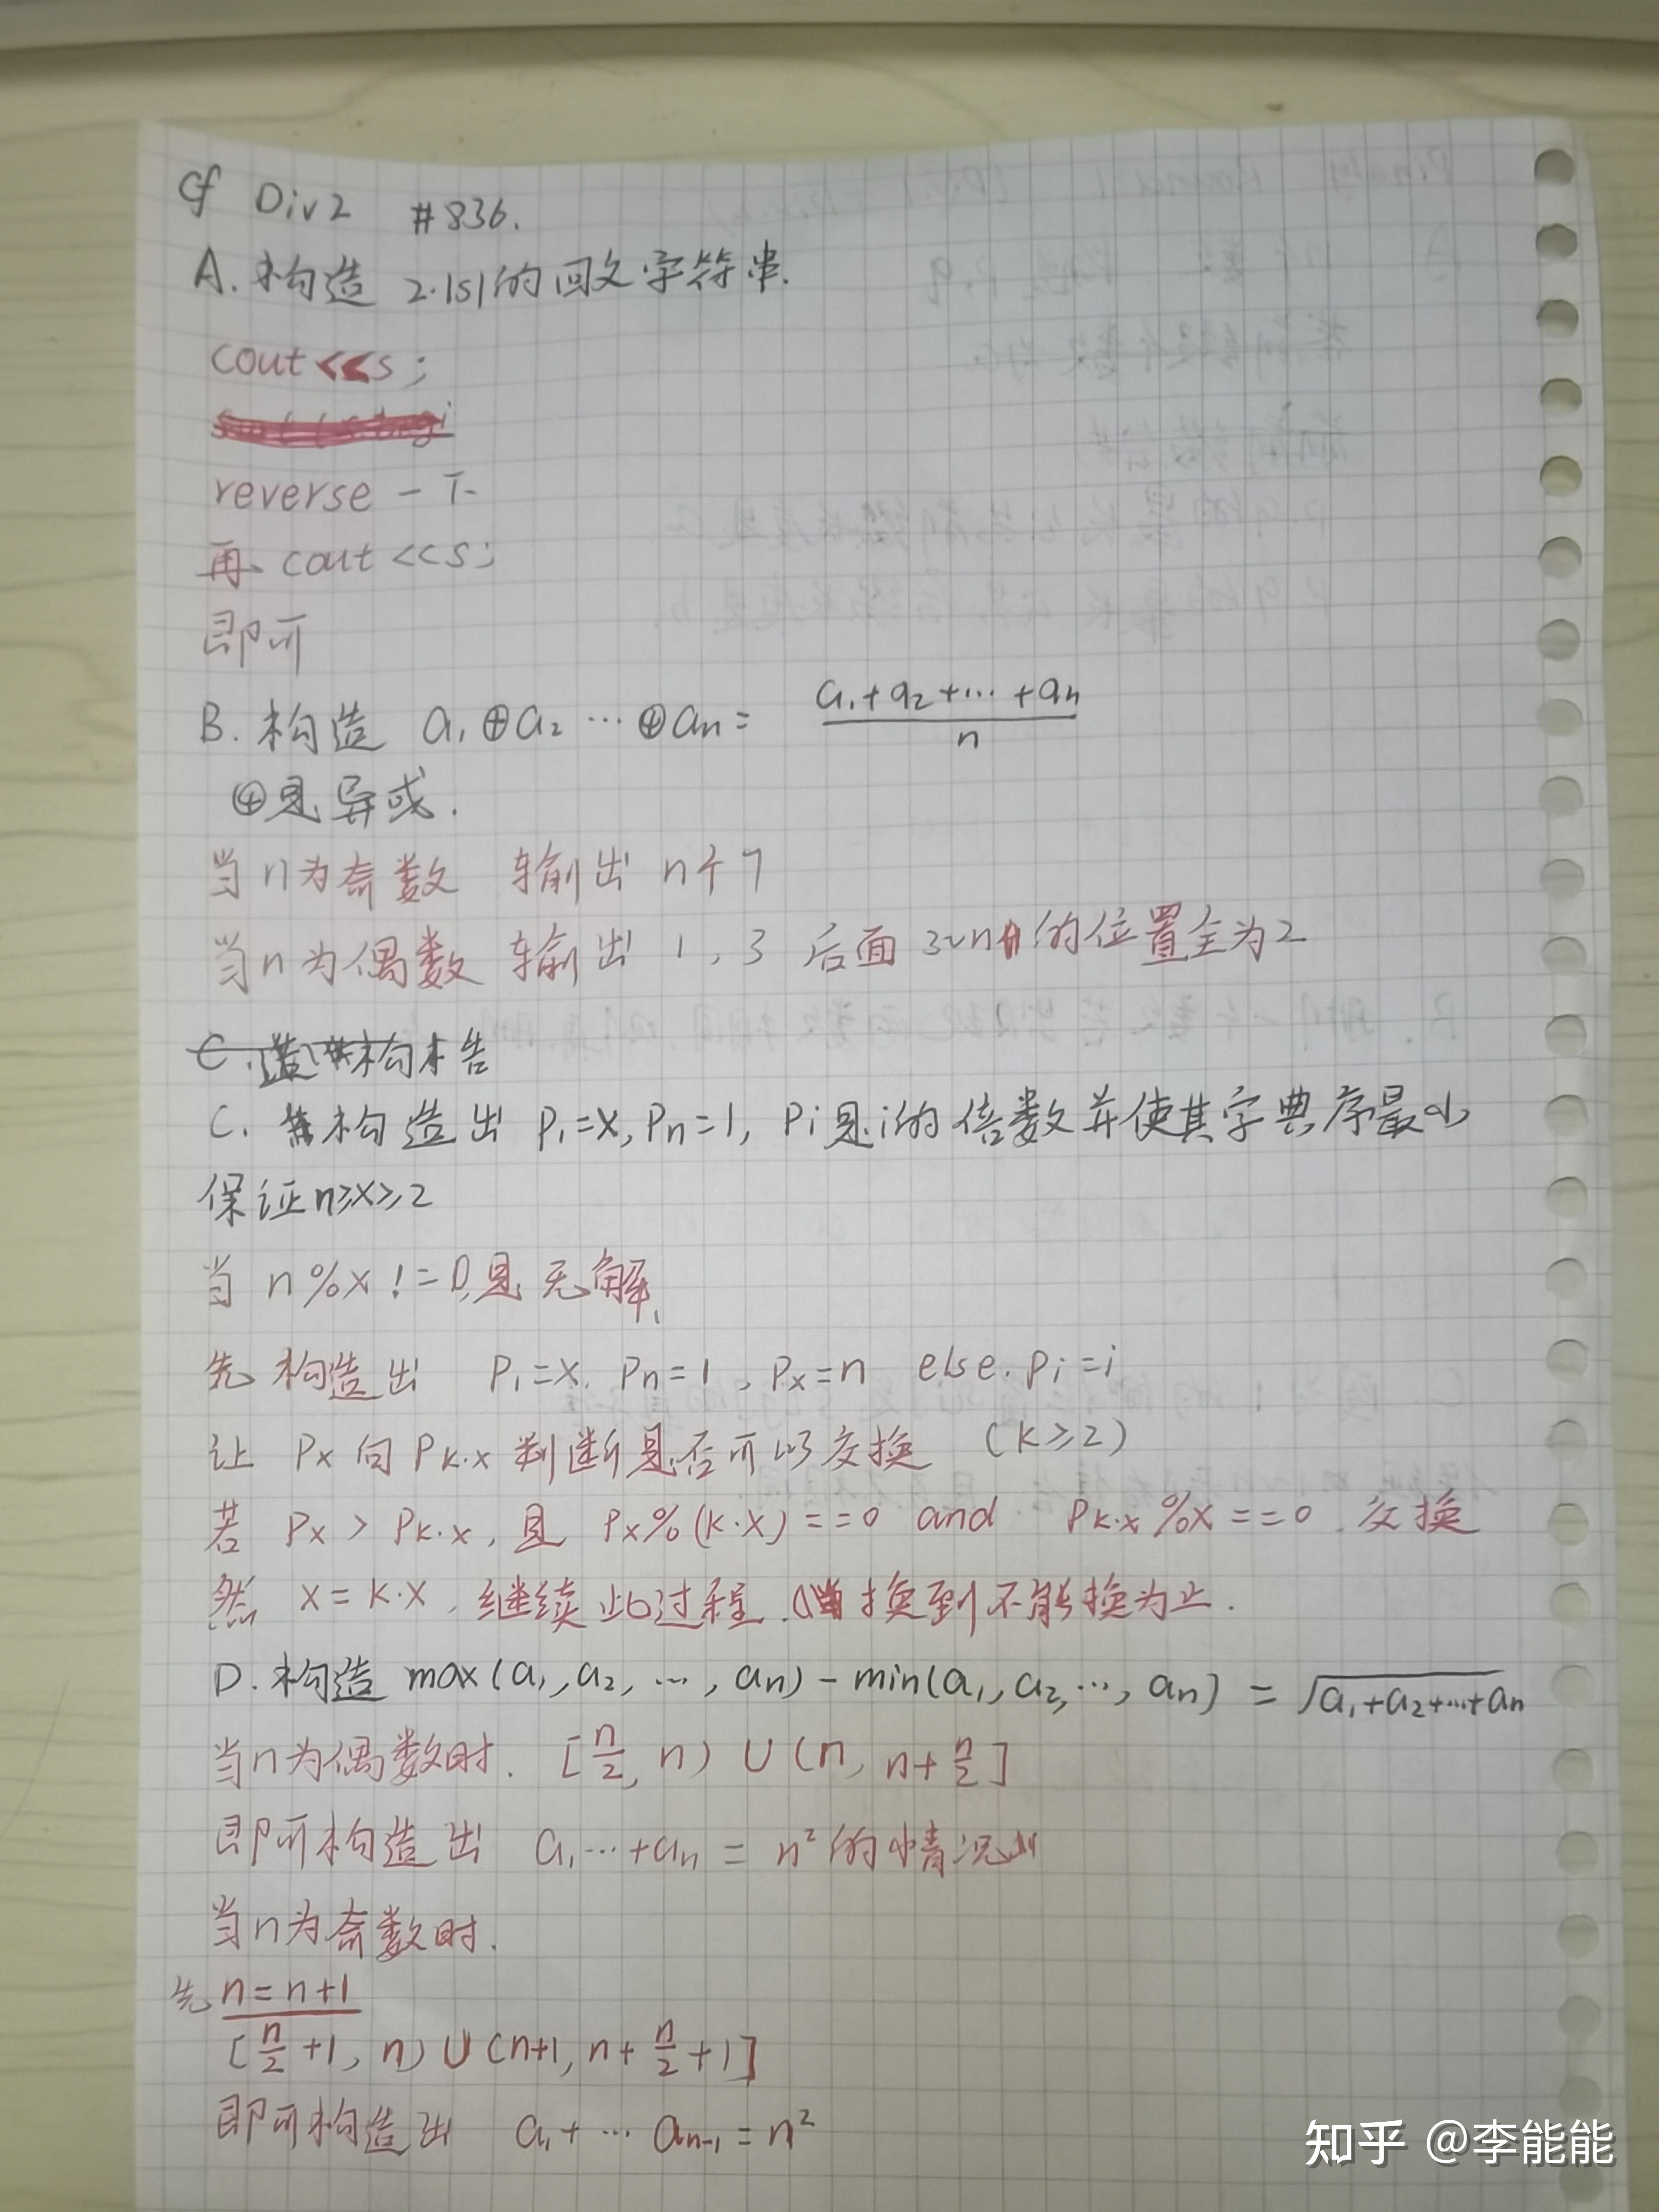 cf Div2 #836.
A. 构造 2·|s|的回文字符串.
cout<<s;
reverse一下
再 cout<<s;
即可
B. 构造 a₁⊕a₂…⊕aₙ= (a₁+a₂+…+aₙ)/n
⊕是异或.
当n为奇数 输出 n个7
当n为偶数 输出 1, 3 后面 3~n 的位置全为2
C. 构造出 P₁=x, Pₙ=1, Pi是i的倍数并使其字典序最小
保证n≥x≥2
当 n%x!=0,是无解,
先构造出 P₁=x. Pₙ=1, Pₓ=n else. Pi=i
让 Pₓ 向 P_{k·x} 判断是否可以交换 (k≥2)
若 Pₓ > P_{k·x}, 且 Pₓ%(k·x)==0 and P_{k·x}%x==0. 交换
然 x=k·x, 继续此过程. 换到不能换为止.
D. 构造 max(a₁,a₂,…,aₙ)-min(a₁,a₂,…,aₙ) = √(a₁+a₂+…+aₙ)
当n为偶数时. [n/2, n) ∪ (n, n+n/2]
即可构造出 a₁…+aₙ = n²的情况
当n为奇数时.
先 n=n+1
[n/2+1, n) ∪ (n+1, n+n/2+1]
即可构造出 a₁+…aₙ₋₁=n²
知乎 @李能能